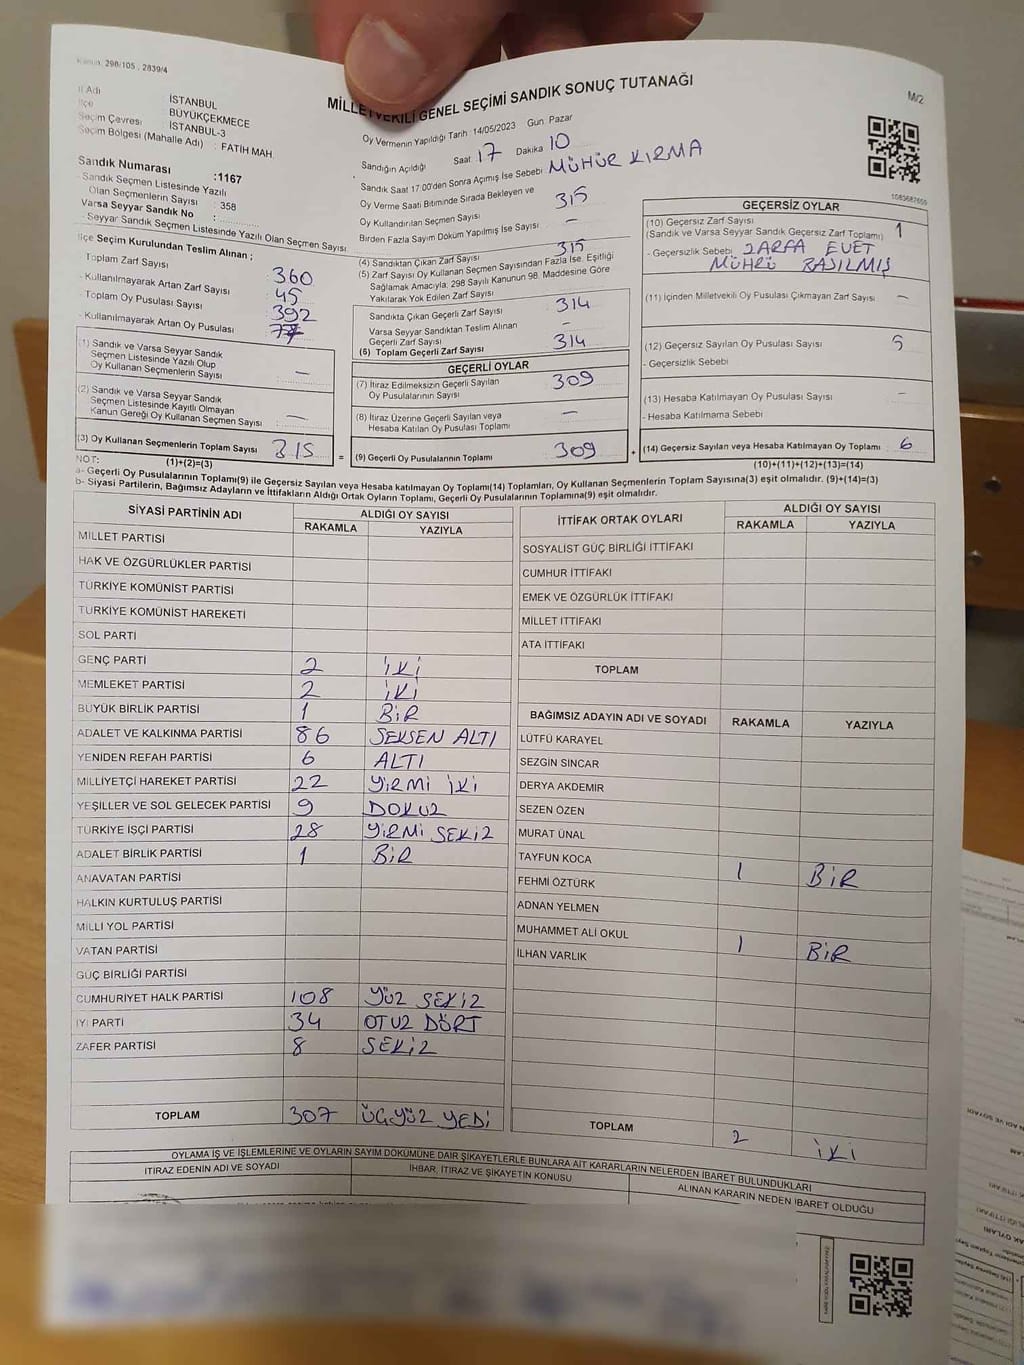 Kanun: 298/105 , 2839/4
MİLLETVEKİLİ GENEL SEÇİMİ SANDIK SONUÇ TUTANAĞI
M/2
İl Adı : İSTANBUL
İlçe : BÜYÜKÇEKMECE
Seçim Çevresi : İSTANBUL-3
Seçim Bölgesi (Mahalle Adı) : FATİH MAH.
Sandık Numarası :1167
- Sandık Seçmen Listesinde Yazılı
Olan Seçmenlerin Sayısı : 358
Varsa Seyyar Sandık No :
- Seyyar Sandık Seçmen Listesinde Yazılı Olan Seçmen Sayısı :
İlçe Seçim Kurulundan Teslim Alınan ;
Toplam Zarf Sayısı 360
- Kullanılmayarak Artan Zarf Sayısı 45
- Toplam Oy Pusulası Sayısı 392
- Kullanılmayarak Artan Oy Pusulası 77
(1) Sandık ve Varsa Seyyar Sandık
Seçmen Listesinde Yazılı Olup
Oy Kullanan Seçmenlerin Sayısı : —
(2) Sandık ve Varsa Seyyar Sandık
Seçmen Listesinde Kayıtlı Olmayan
Kanun Gereği Oy Kullanan Seçmen Sayısı : —
(3) Oy Kullanan Seçmenlerin Toplam Sayısı : 315
(1)+(2)=(3)
Oy Vermenin Yapıldığı Tarih : 14/05/2023 Gün: Pazar
Sandığın Açıldığı Saat: 17 Dakika: 10
Sandık Saat 17:00'den Sonra Açımış İse Sebebi : MÜHÜR KIRMA
Oy Verme Saati Bitiminde Sırada Bekleyen ve
Oy Kullandırılan Seçmen Sayısı 315
Birden Fazla Sayım Döküm Yapılmış İse Sayısı : —
(4) Sandıktan Çıkan Zarf Sayısı 315
(5) Zarf Sayısı Oy Kullanan Seçmen Sayısından Fazla İse, Eşitliği
Sağlamak Amacıyla; 298 Sayılı Kanunun 98. Maddesine Göre
Yakılarak Yok Edilen Zarf Sayısı
Sandıkta Çıkan Geçerli Zarf Sayısı 314
Varsa Seyyar Sandıktan Teslim Alınan
Geçerli Zarf Sayısı —
(6) Toplam Geçerli Zarf Sayısı 314
GEÇERLİ OYLAR
(7) İtiraz Edilmeksizin Geçerli Sayılan
Oy Pusulalarının Sayısı 309
(8) İtiraz Üzerine Geçerli Sayılan veya
Hesaba Katılan Oy Pusulası Toplamı —
= (9) Geçerli Oy Pusulalarının Toplamı 309 +
1083687655
GEÇERSİZ OYLAR
(10) Geçersiz Zarf Sayısı 1
(Sandık ve Varsa Seyyar Sandık Geçersiz Zarf Toplamı)
- Geçersizlik Sebebi ZARFA EVET
MÜHRÜ BASILMIŞ
(11) İçinden Milletvekili Oy Pusulası Çıkmayan Zarf Sayısı : —
(12) Geçersiz Sayılan Oy Pusulası Sayısı 5
- Geçersizlik Sebebi
(13) Hesaba Katılmayan Oy Pusulası Sayısı : —
- Hesaba Katılmama Sebebi
(14) Geçersiz Sayılan veya Hesaba Katılmayan Oy Toplamı : 6
(10)+(11)+(12)+(13)=(14)
NOT:
a- Geçerli Oy Pusulalarının Toplamı(9) ile Geçersiz Sayılan veya Hesaba Katılmayan Oy Toplamı(14) Toplamları, Oy Kullanan Seçmenlerin Toplam Sayısına(3) eşit olmalıdır. (9)+(14)=(3)
b- Siyasi Partilerin, Bağımsız Adayların ve İttifakların Aldığı Ortak Oyların Toplamı, Geçerli Oy Pusulalarının Toplamına(9) eşit olmalıdır.
SİYASİ PARTİNİN ADI ALDIĞI OY SAYISI
RAKAMLA YAZIYLA
MİLLET PARTİSİ
HAK VE ÖZGÜRLÜKLER PARTİSİ
TÜRKİYE KOMÜNİST PARTİSİ
TÜRKİYE KOMÜNİST HAREKETİ
SOL PARTİ
GENÇ PARTİ 2 İKİ
MEMLEKET PARTİSİ 2 İKİ
BÜYÜK BİRLİK PARTİSİ 1 BİR
ADALET VE KALKINMA PARTİSİ 86 SEKSEN ALTI
YENİDEN REFAH PARTİSİ 6 ALTI
MİLLİYETÇİ HAREKET PARTİSİ 22 YİRMİ İKİ
YEŞİLLER VE SOL GELECEK PARTİSİ 9 DOKUZ
TÜRKİYE İŞÇİ PARTİSİ 28 YİRMİ SEKİZ
ADALET BİRLİK PARTİSİ 1 BİR
ANAVATAN PARTİSİ
HALKIN KURTULUŞ PARTİSİ
MİLLİ YOL PARTİSİ
VATAN PARTİSİ
GÜÇ BİRLİĞİ PARTİSİ
CUMHURİYET HALK PARTİSİ 108 YÜZ SEKİZ
İYİ PARTİ 34 OTUZ DÖRT
ZAFER PARTİSİ 8 SEKİZ
TOPLAM 307 ÜÇYÜZ YEDİ
İTTİFAK ORTAK OYLARI ALDIĞI OY SAYISI
RAKAMLA YAZIYLA
SOSYALİST GÜÇ BİRLİĞİ İTTİFAKI
CUMHUR İTTİFAKI
EMEK VE ÖZGÜRLÜK İTTİFAKI
MİLLET İTTİFAKI
ATA İTTİFAKI
TOPLAM
BAĞIMSIZ ADAYIN ADI VE SOYADI RAKAMLA YAZIYLA
LÜTFÜ KARAYEL
SEZGİN SİNCAR
DERYA AKDEMİR
SEZEN ÖZEN
MURAT ÜNAL
TAYFUN KOCA 1 BİR
FEHMİ ÖZTÜRK
ADNAN YELMEN
MUHAMMET ALİ OKUL 1 BİR
İLHAN VARLIK
TOPLAM 2 İKİ
OYLAMA İŞ VE İŞLEMLERİNE VE OYLARIN SAYIM DÖKÜMÜNE DAİR ŞİKAYETLERLE BUNLARA AİT KARARLARIN NELERDEN İBARET BULUNDUKLARI
İTİRAZ EDENİN ADI VE SOYADI İHBAR, İTİRAZ VE ŞİKAYETİN KONUSU ALINAN KARARIN NEDEN İBARET OLDUĞU